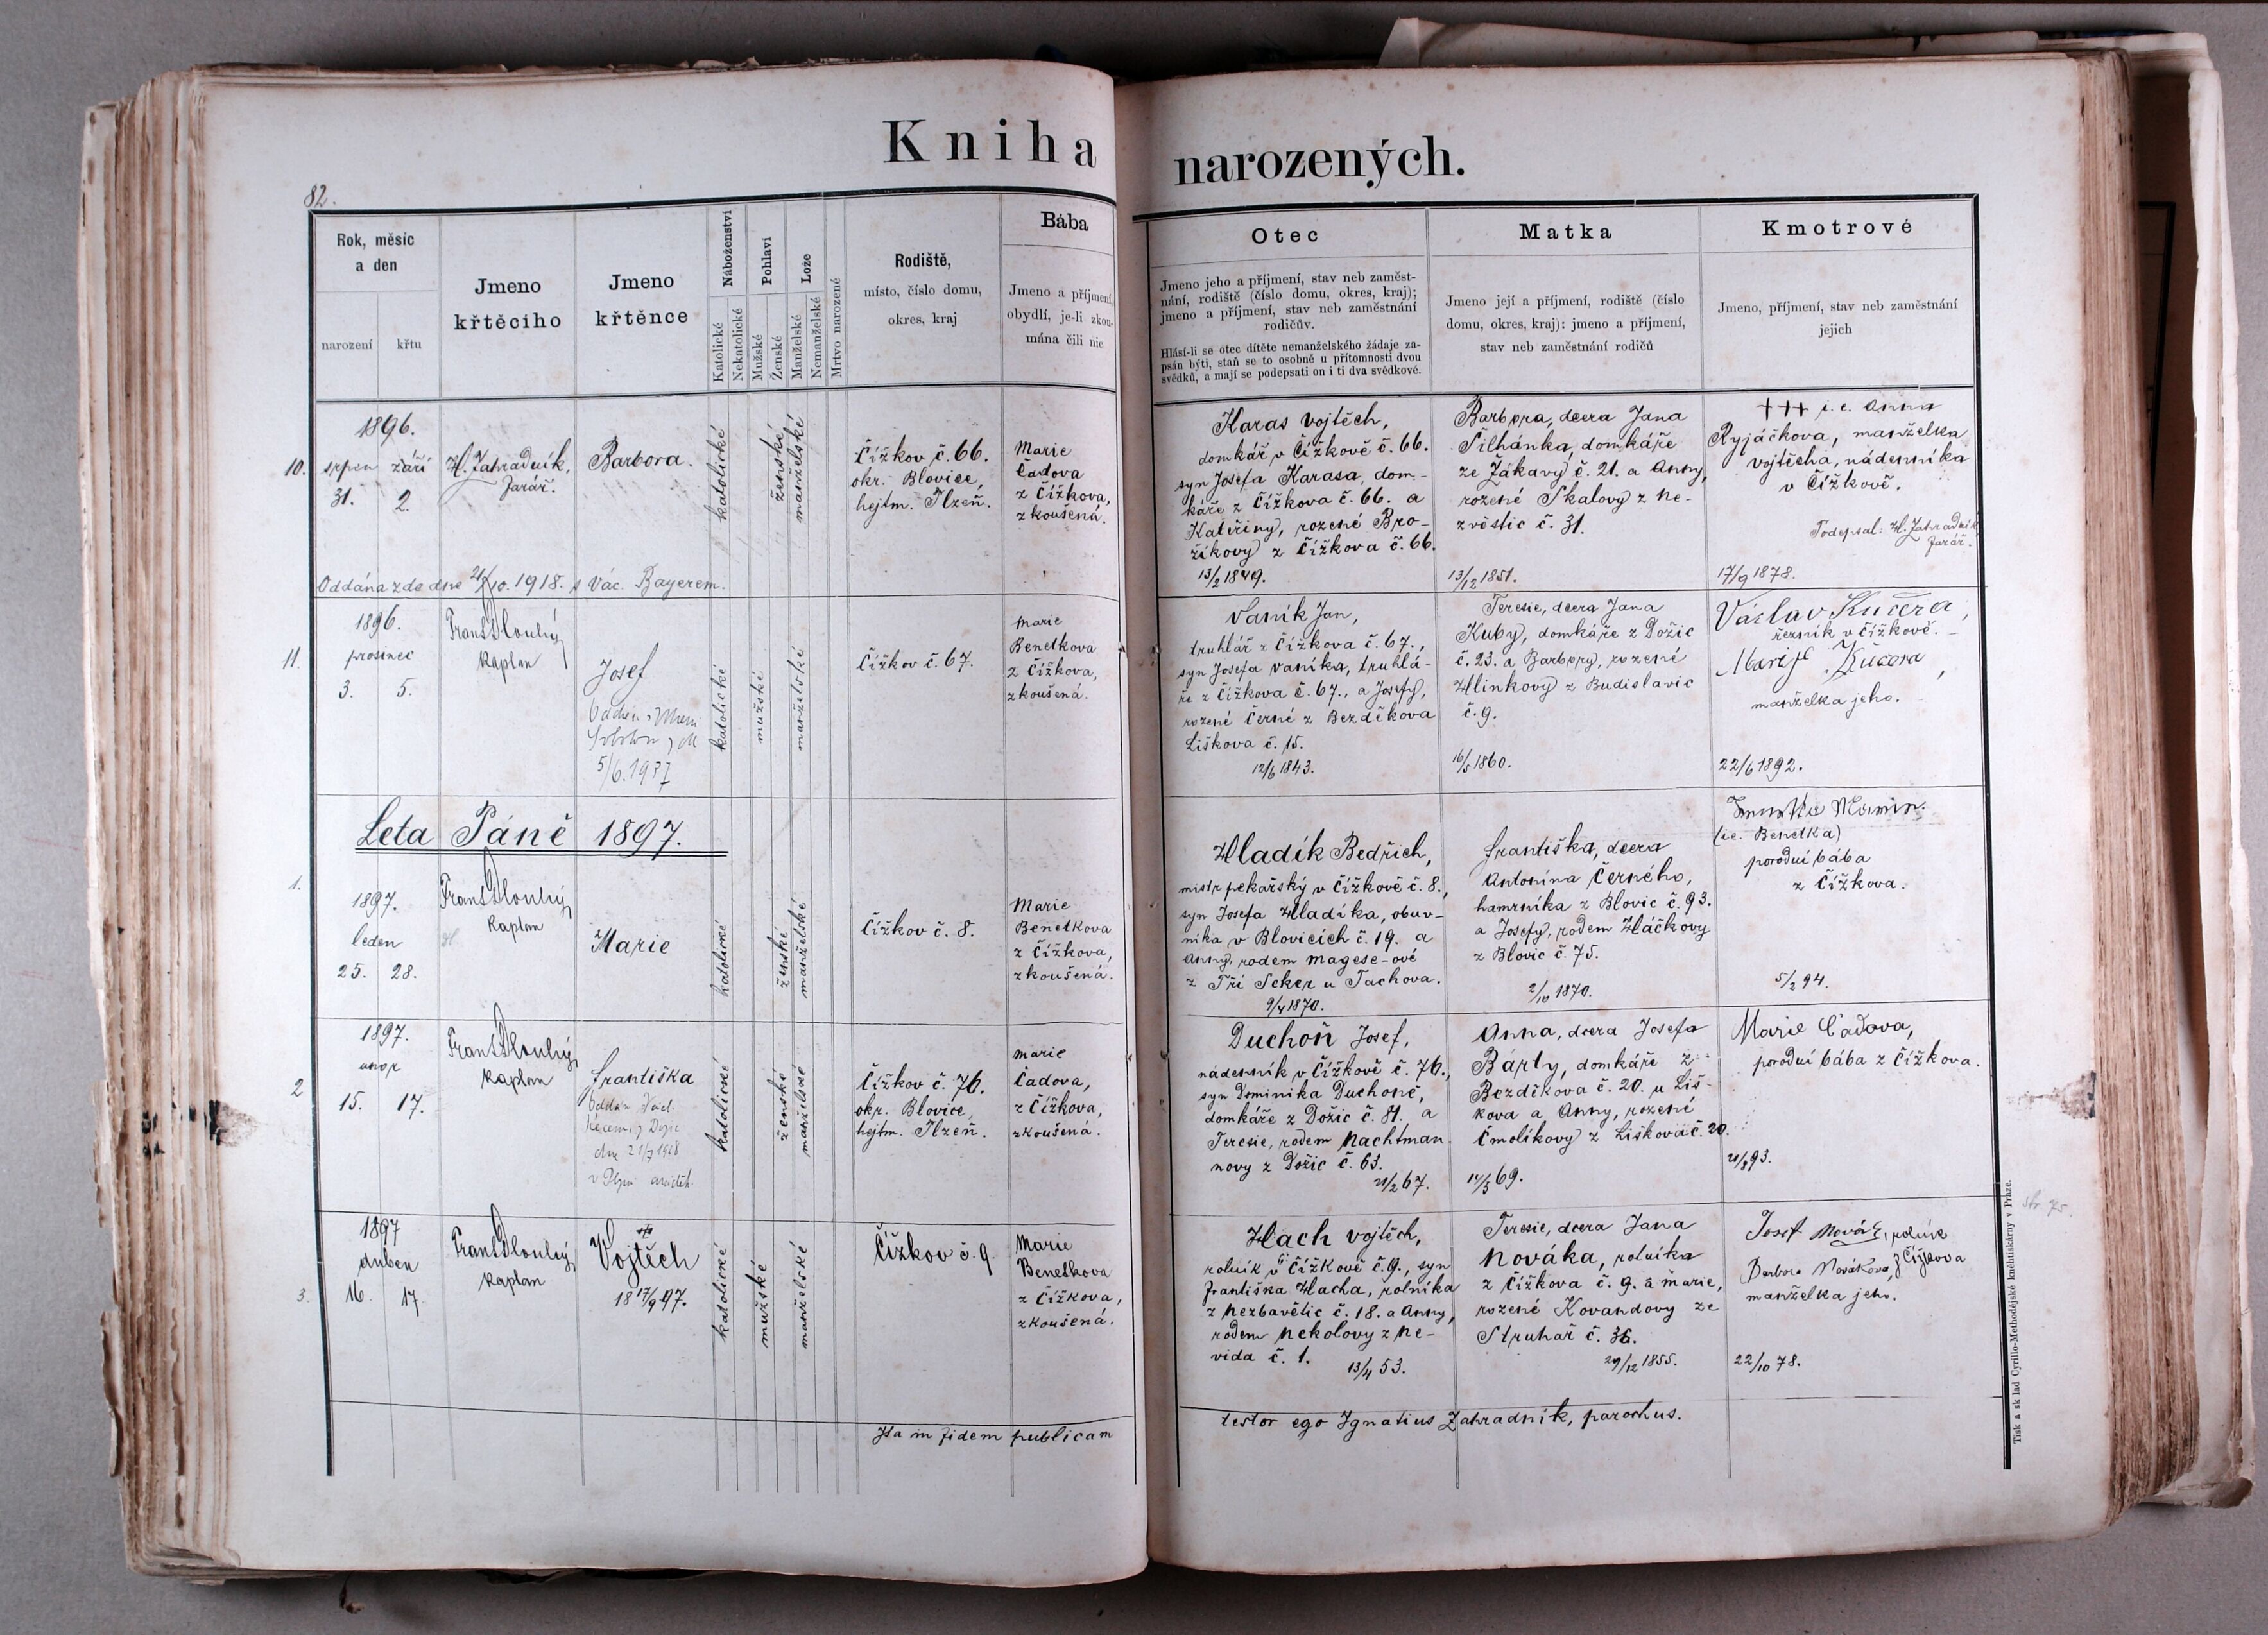 Kniha narozených.
82.
Rok, měsíc
a den
narození
křtu
Jmeno
křtěciho
Jmeno
křtěnce
Náboženství
Katolické
Nekatolické
Pohlaví
Mužské
Ženské
Lože
Manželské
Nemanželské
Mrtvo narozené
Rodiště,
místo, číslo domu,
okres, kraj
Bába
Jmeno a příjmení,
obydlí, je-li zkou-
mána čili nic
Otec
Jmeno jeho a příjmení, stav neb zaměst-
nání, rodiště (číslo domu, okres, kraj);
jmeno a příjmení, stav neb zaměstnání
rodičův.
Hlásí-li se otec dítěte nemanželského žádaje za-
psán býti, staň se to osobně u přítomnosti dvou
svědků, a mají se podepsati on i ti dva svědkové.
Matka
Jmeno její a příjmení, rodiště (číslo
domu, okres, kraj): jmeno a příjmení,
stav neb zaměstnání rodičů
Kmotrové
Jmeno, příjmení, stav neb zaměstnání
jejich
10.
1896.
srpen září
31. 2.
H. Zahradník,
farář.
Barbora.
katolické
ženské
manželské
Čížkov č. 66.
okr. Blovice,
hejtm. Plzeň.
Marie
Čadova
z Čížkova,
zkoušená.
Karas Vojtěch,
domkář v Čížkově č. 66.
syn Josefa Karasa, dom-
káře z Čížkova č. 66. a
Kateřiny, rozené Bro-
žíkovy z Čížkova č. 66.
13/2 1849.
Barbora, dcera Jana
Šilhánka, domkáře
ze Zákavy č. 21. a Anny,
rozené Skalovy z Ne-
zvěstic č. 31.
13/12 1851.
+++ i. e. Anna
Ryjáčkova, manželka
Vojtěcha, nádenníka
v Čížkově.
Podepsal: H. Zahradník
farář.
17/9 1878.
Oddána zde dne 21/10. 1918. s Vác. Bayerem.
11.
1896.
prosinec
3. 5.
Frant Dlouhý
kaplan
Josef
5/6. 1937
katolické
mužské
manželské
Čížkov č. 67.
Marie
Benetkova
z Čížkova,
zkoušená.
Vaník Jan,
truhlář z Čížkova č. 67.,
syn Josefa Vaníka, truhlá-
ře z Čížkova č. 67., a Josefy,
rozené Černé z Bezděkova
Liškova č. 15.
12/6 1843.
Teresie, dcera Jana
Kuby, domkáře z Dožic
č. 23. a Barbory, rozené
Hlinkovy z Budislavic
č. 9.
16/5 1860.
Václav Kučera,
řezník v Čížkově.
Marije Kučera,
manželka jeho.
22/6 1892.
Leta Páně 1897.
1.
1897.
leden
25. 28.
Frant Dlouhý
kaplan
Marie
katolické
ženské
manželské
Čížkov č. 8.
Marie
Benetkova
z Čížkova,
zkoušená.
Hladík Bedřich,
mistr pekařský v Čížkově č. 8.,
syn Josefa Hladíka, obuv-
níka v Blovicích č. 19. a
Anny, rodem Magese-ové
z Tří Seker u Tachova.
9/4 1870.
Františka, dcera
Antonína Černého,
hamrníka z Blovic č. 93.
a Josefy, rodem Háčkovy
z Blovic č. 75.
2/10 1870.
(ie. Benetka)
porodní bába
z Čížkova.
5/2 94.
2
1897.
unor
15. 17.
Frant Dlouhý
kaplan
Františka
dne 21/7 1928
katolické
ženské
manželské
Čížkov č. 76.
okr. Blovice,
hejtm. Plzeň.
Marie
Čadova,
z Čížkova,
zkoušená.
Duchoň Josef,
nádenník v Čížkově č. 76.,
syn Dominika Duchoně,
domkáře z Dožic č. 81. a
Teresie, rodem Nachtman-
novy z Dožic č. 63.
21/2 67.
Anna, dcera Josefa
Bárty, domkáře z
Bezděkova č. 20. u Liš-
kova a Anny, rozené
Čmolíkovy z Liškova č. 20.
14/5 69.
Marie Čadova,
porodní bába z Čížkova.
21/8 93.
3.
1897
duben
16. 17.
Frant Dlouhý
kaplan
Vojtěch
18 17/9 97.
katolické
mužské
manželské
Čížkov č. 9.
Marie
Benetkova
z Čížkova,
zkoušená.
Hach Vojtěch,
rolník v Čížkově č. 9., syn
Františka Hacha, rolníka
z Nezbavětic č. 18. a Anny,
rodem Nekolovy z Ne-
vida č. 1.
13/4 53.
Teresie, dcera Jana
Nováka, rolníka
z Čížkova č. 9. a Marie,
rozené Kovandovy ze
Struhař č. 36.
29/12 1855.
Josef Novák, rolník
Barbora Nováková, z Čížkova
manželka jeho.
22/10 78.
str. 75.
Ita in fidem publicam testor ego Ignatius Zahradník, parochus.
Tisk a sklad Cyrillo-Methodějské knihtiskárny v Praze.